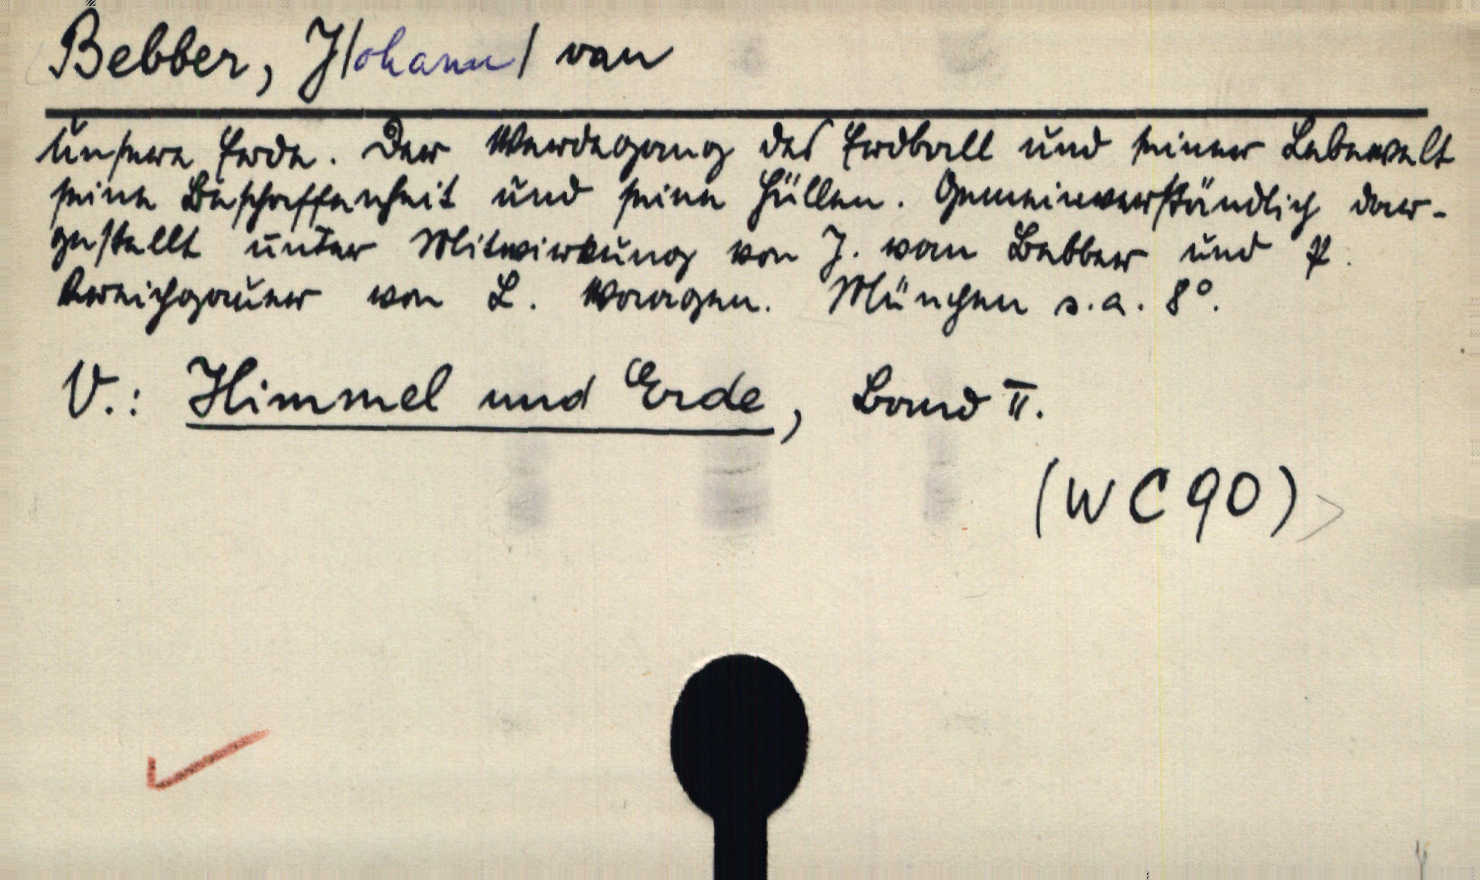 Bebber, J/ohann/ van
Unsere Erde. Der Werdegang des Erdball und seiner Lebewelt
seine Beschaffenheit und seine Hüllen. Gemeinverständlich dar-
gestellt unter Mitwirkung von J. van Bebber und P.
Kreichgauer von L. Waagen. München s.a. 8°.
V.: Himmel und Erde, Band II.
(WC90)